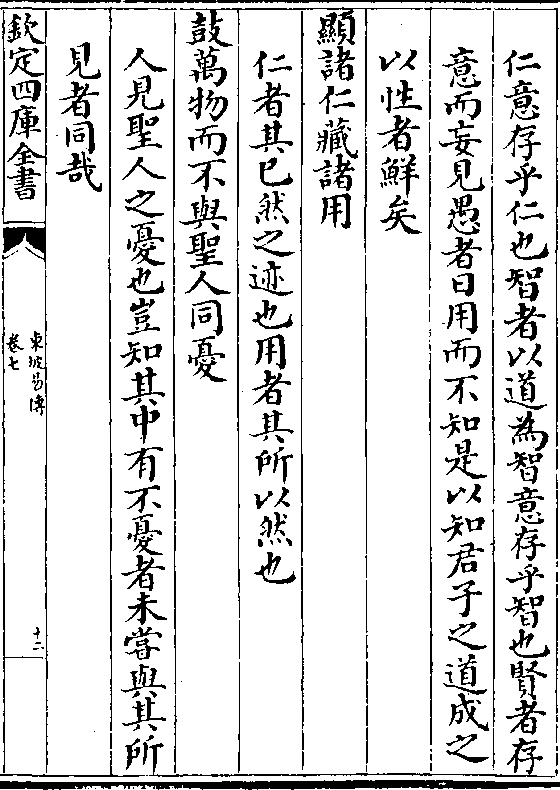 仁意存乎仁也智者以道為智意存乎智也賢者存
意而妄見愚者日用而不知是以知君子之道成之
以性者鮮矣
顯諸仁藏諸用
仁者其已然之迹也用者其所以然也
鼓萬物而不與聖人同憂
人見聖人之憂也豈知其中有不憂者未嘗與其所
見者同哉
欽定四庫全書
東坡易傳
卷七
十二